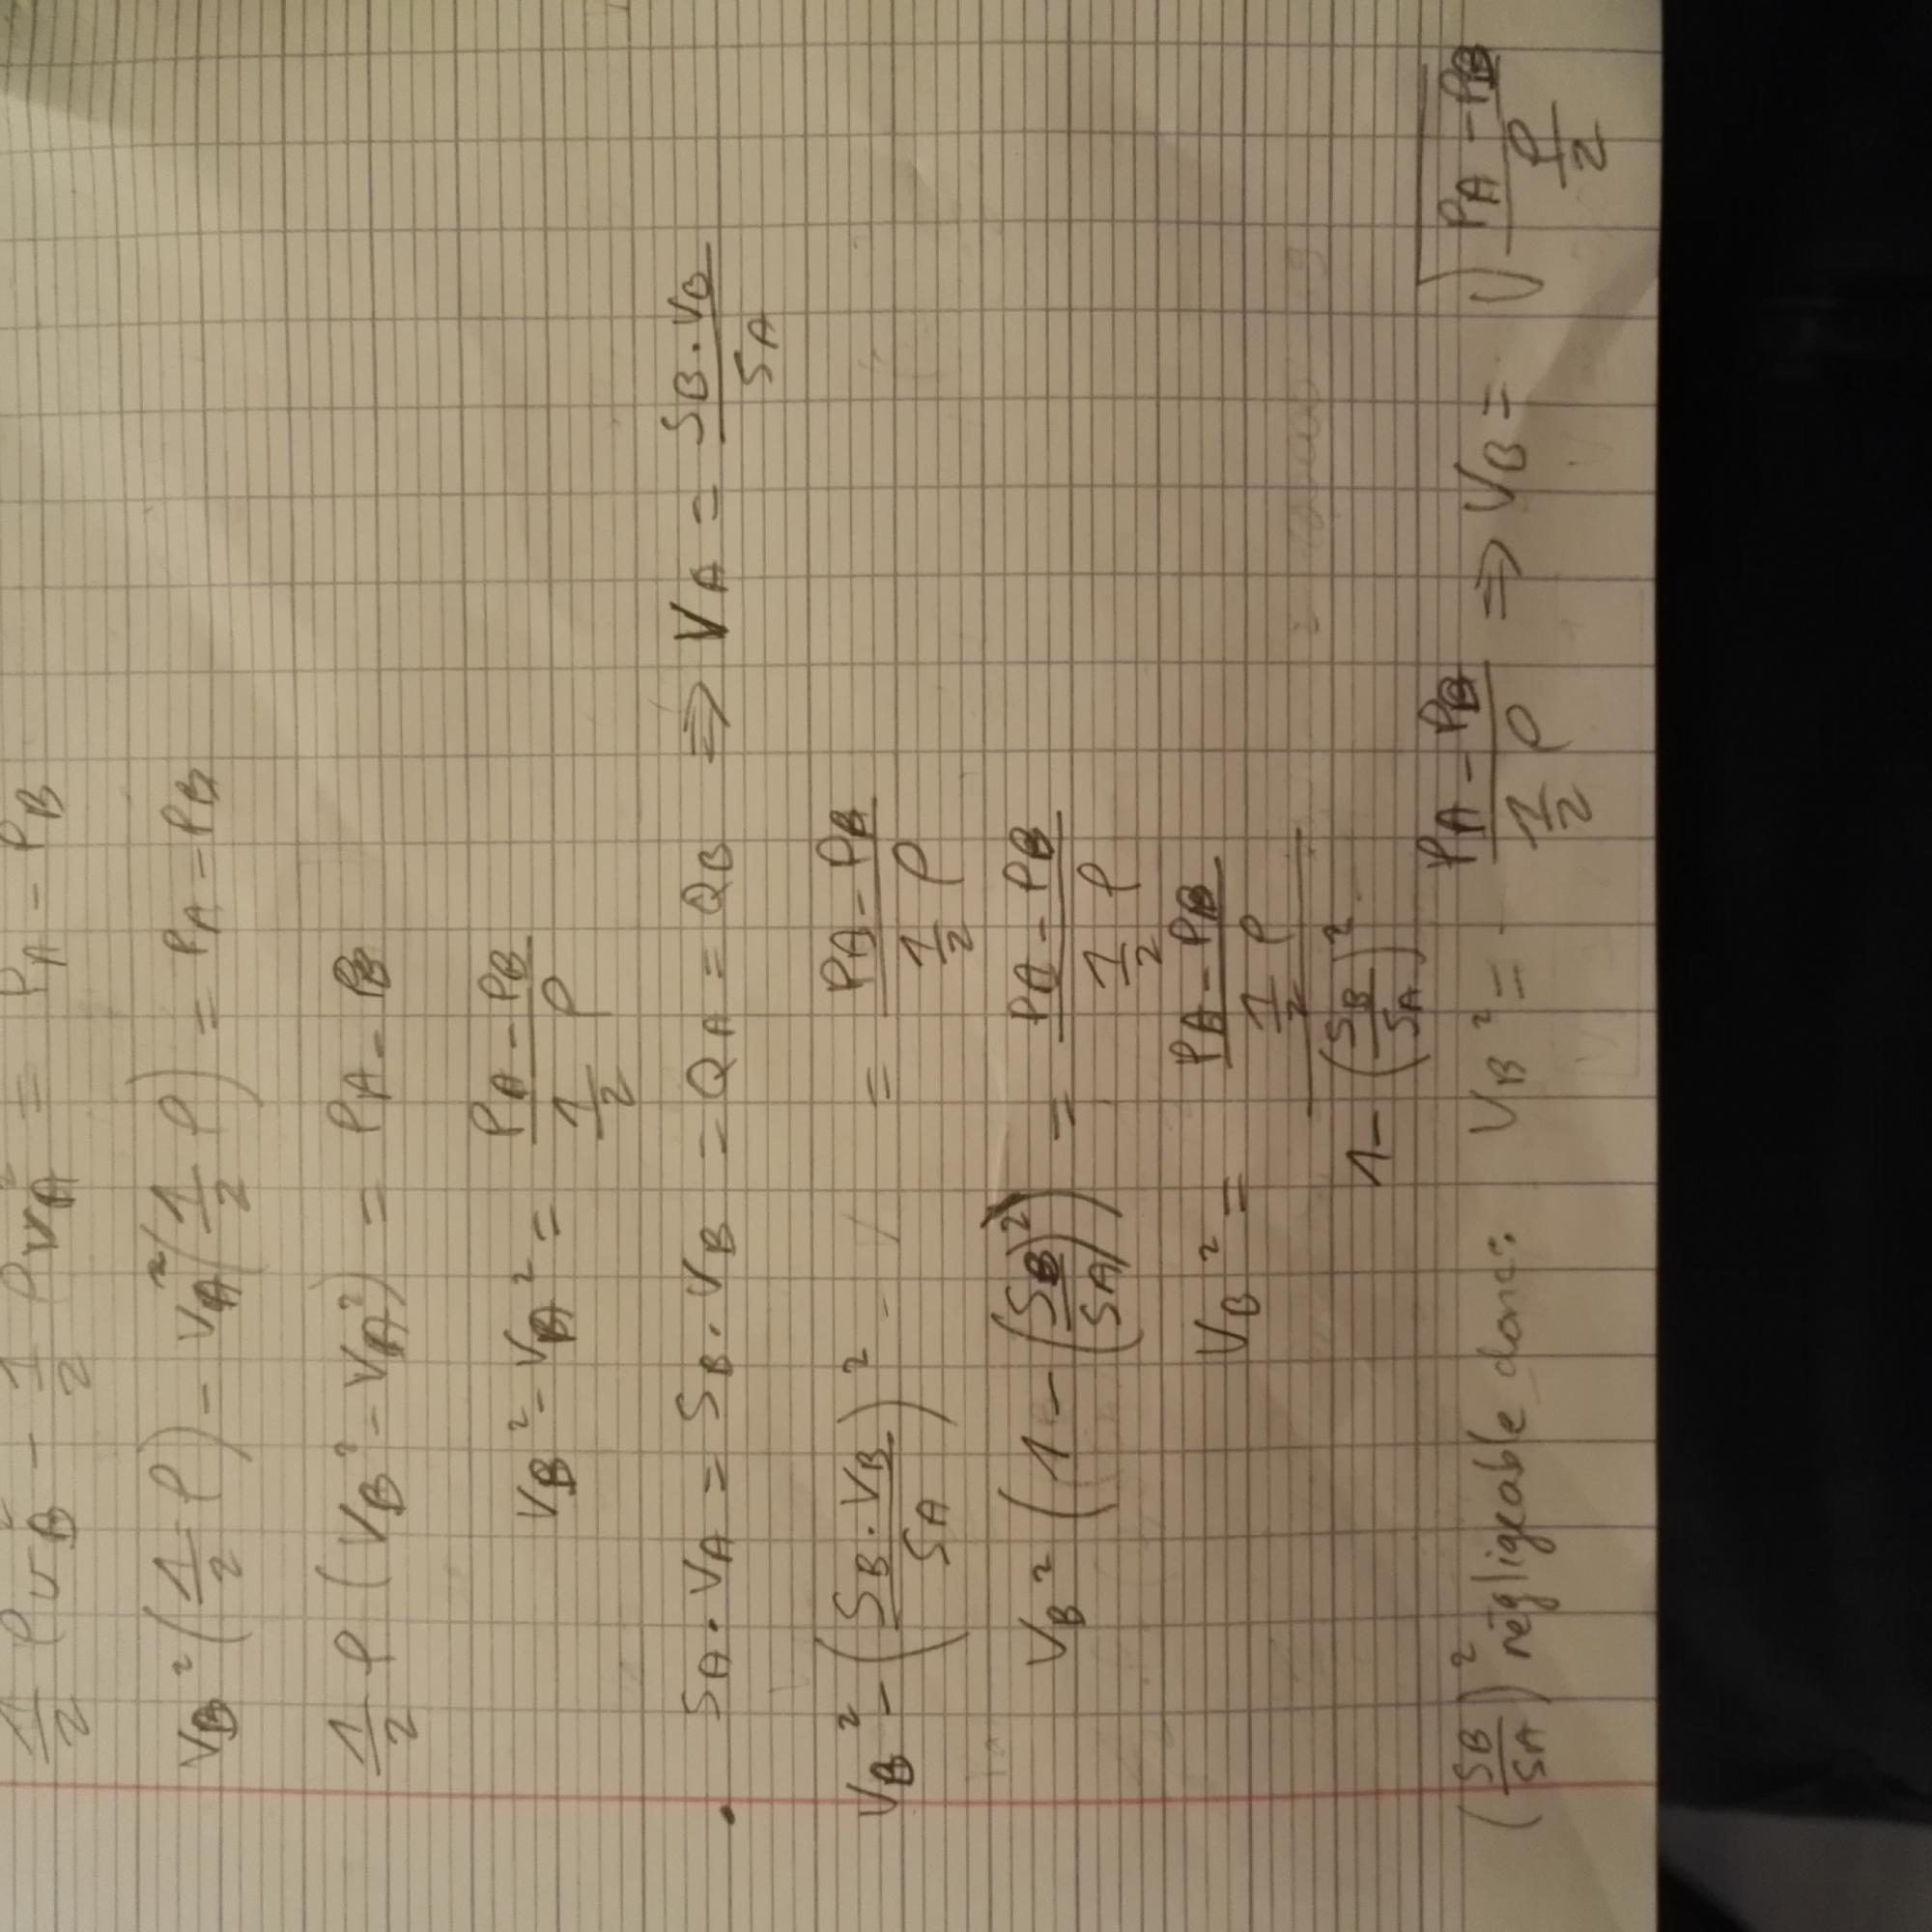 1/2 ρ v_B² - 1/2 ρ v_A² = P_A - P_B
V_B² (1/2 ρ) - V_A² (1/2 ρ) = P_A - P_B
1/2 ρ (V_B² - V_A²) = P_A - P_B
V_B² - V_A² = (P_A - P_B) / (1/2 ρ)
• S_A · V_A = S_B · V_B = Q_A = Q_B ⇒ V_A = (S_B · V_B) / S_A
V_B² - ((S_B · V_B) / S_A)² = (P_A - P_B) / (1/2 ρ)
V_B² (1 - (S_B / S_A)²) = (P_A - P_B) / (1/2 ρ)
V_B² = ((P_A - P_B) / (1/2 ρ)) / (1 - (S_B / S_A)²)
(S_B / S_A)² négligeable donc: V_B² = (P_A - P_B) / (1/2 ρ) ⇒ V_B = √((P_A - P_B) / (ρ/2))